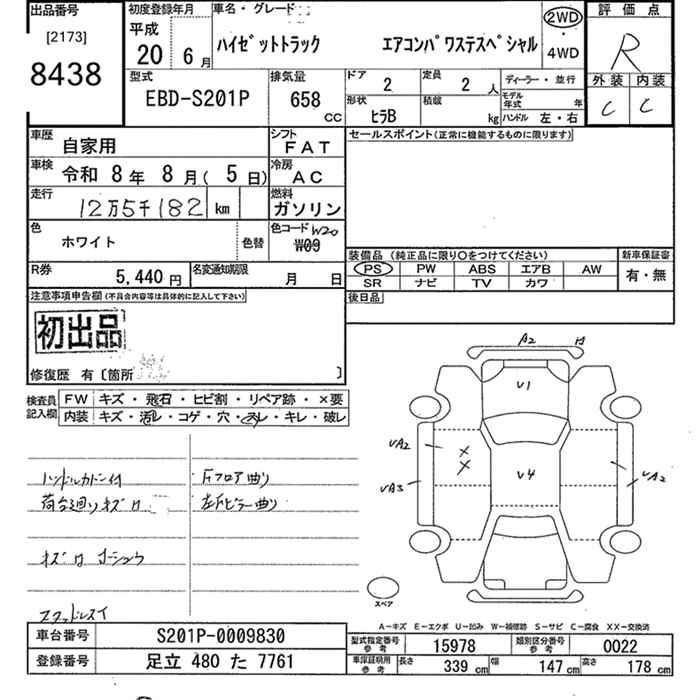 出品番号
[2173]
8438
初度登録年月
平成
20 6月
車名・グレード
ハイゼットトラック エアコンパワステスペシャル
2WD
・
4WD
評価点
R
外装 内装
C C
型式
EBD-S201P
排気量
658
CC
ドア
2
定員
2人
ディーラー・並行
形状
ヒラB
積載
kg
モデル
年式 年
ハンドル 左・右
車歴
自家用
シフト
FAT
セールスポイント(正常に機能するものに限ります)
車検
令和 8年 8月( 5日)
冷房
AC
走行
12万5千182 km
燃料
ガソリン
色
ホワイト
色替
色コード W20
W09
装備品(純正品に限り〇をつけてください)
PS PW ABS エアB AW
SR ナビ TV カワ
新車保証書
有・無
R券
5,440円
名変通知期限
月 日
後日品
注意事項申告欄(不具合内容等は具体的に記入して下さい)
初出品
修復歴 有〔箇所 〕
検査員
記入欄
FW キズ・飛石・ヒビ割・リペア跡・×要
内装 キズ・汚レ・コゲ・穴・スレ・キレ・破レ
ハンドルカバー付
右フロア曲り
左Fピラー曲り
スタッドレスタイ
A2
U1
UA2
UA3
U4
UA2
スペア
A-キズ E-エクボ U-凹み W-補修跡 S-サビ C-腐食 XX-交換済
車台番号 S201P-0009830
登録番号 足立 480 た 7761
型式指定番号
参考
15978
類別区分番号
参考
0022
車庫証明用
参考
長さ 339 cm 幅 147 cm 高さ 178 cm